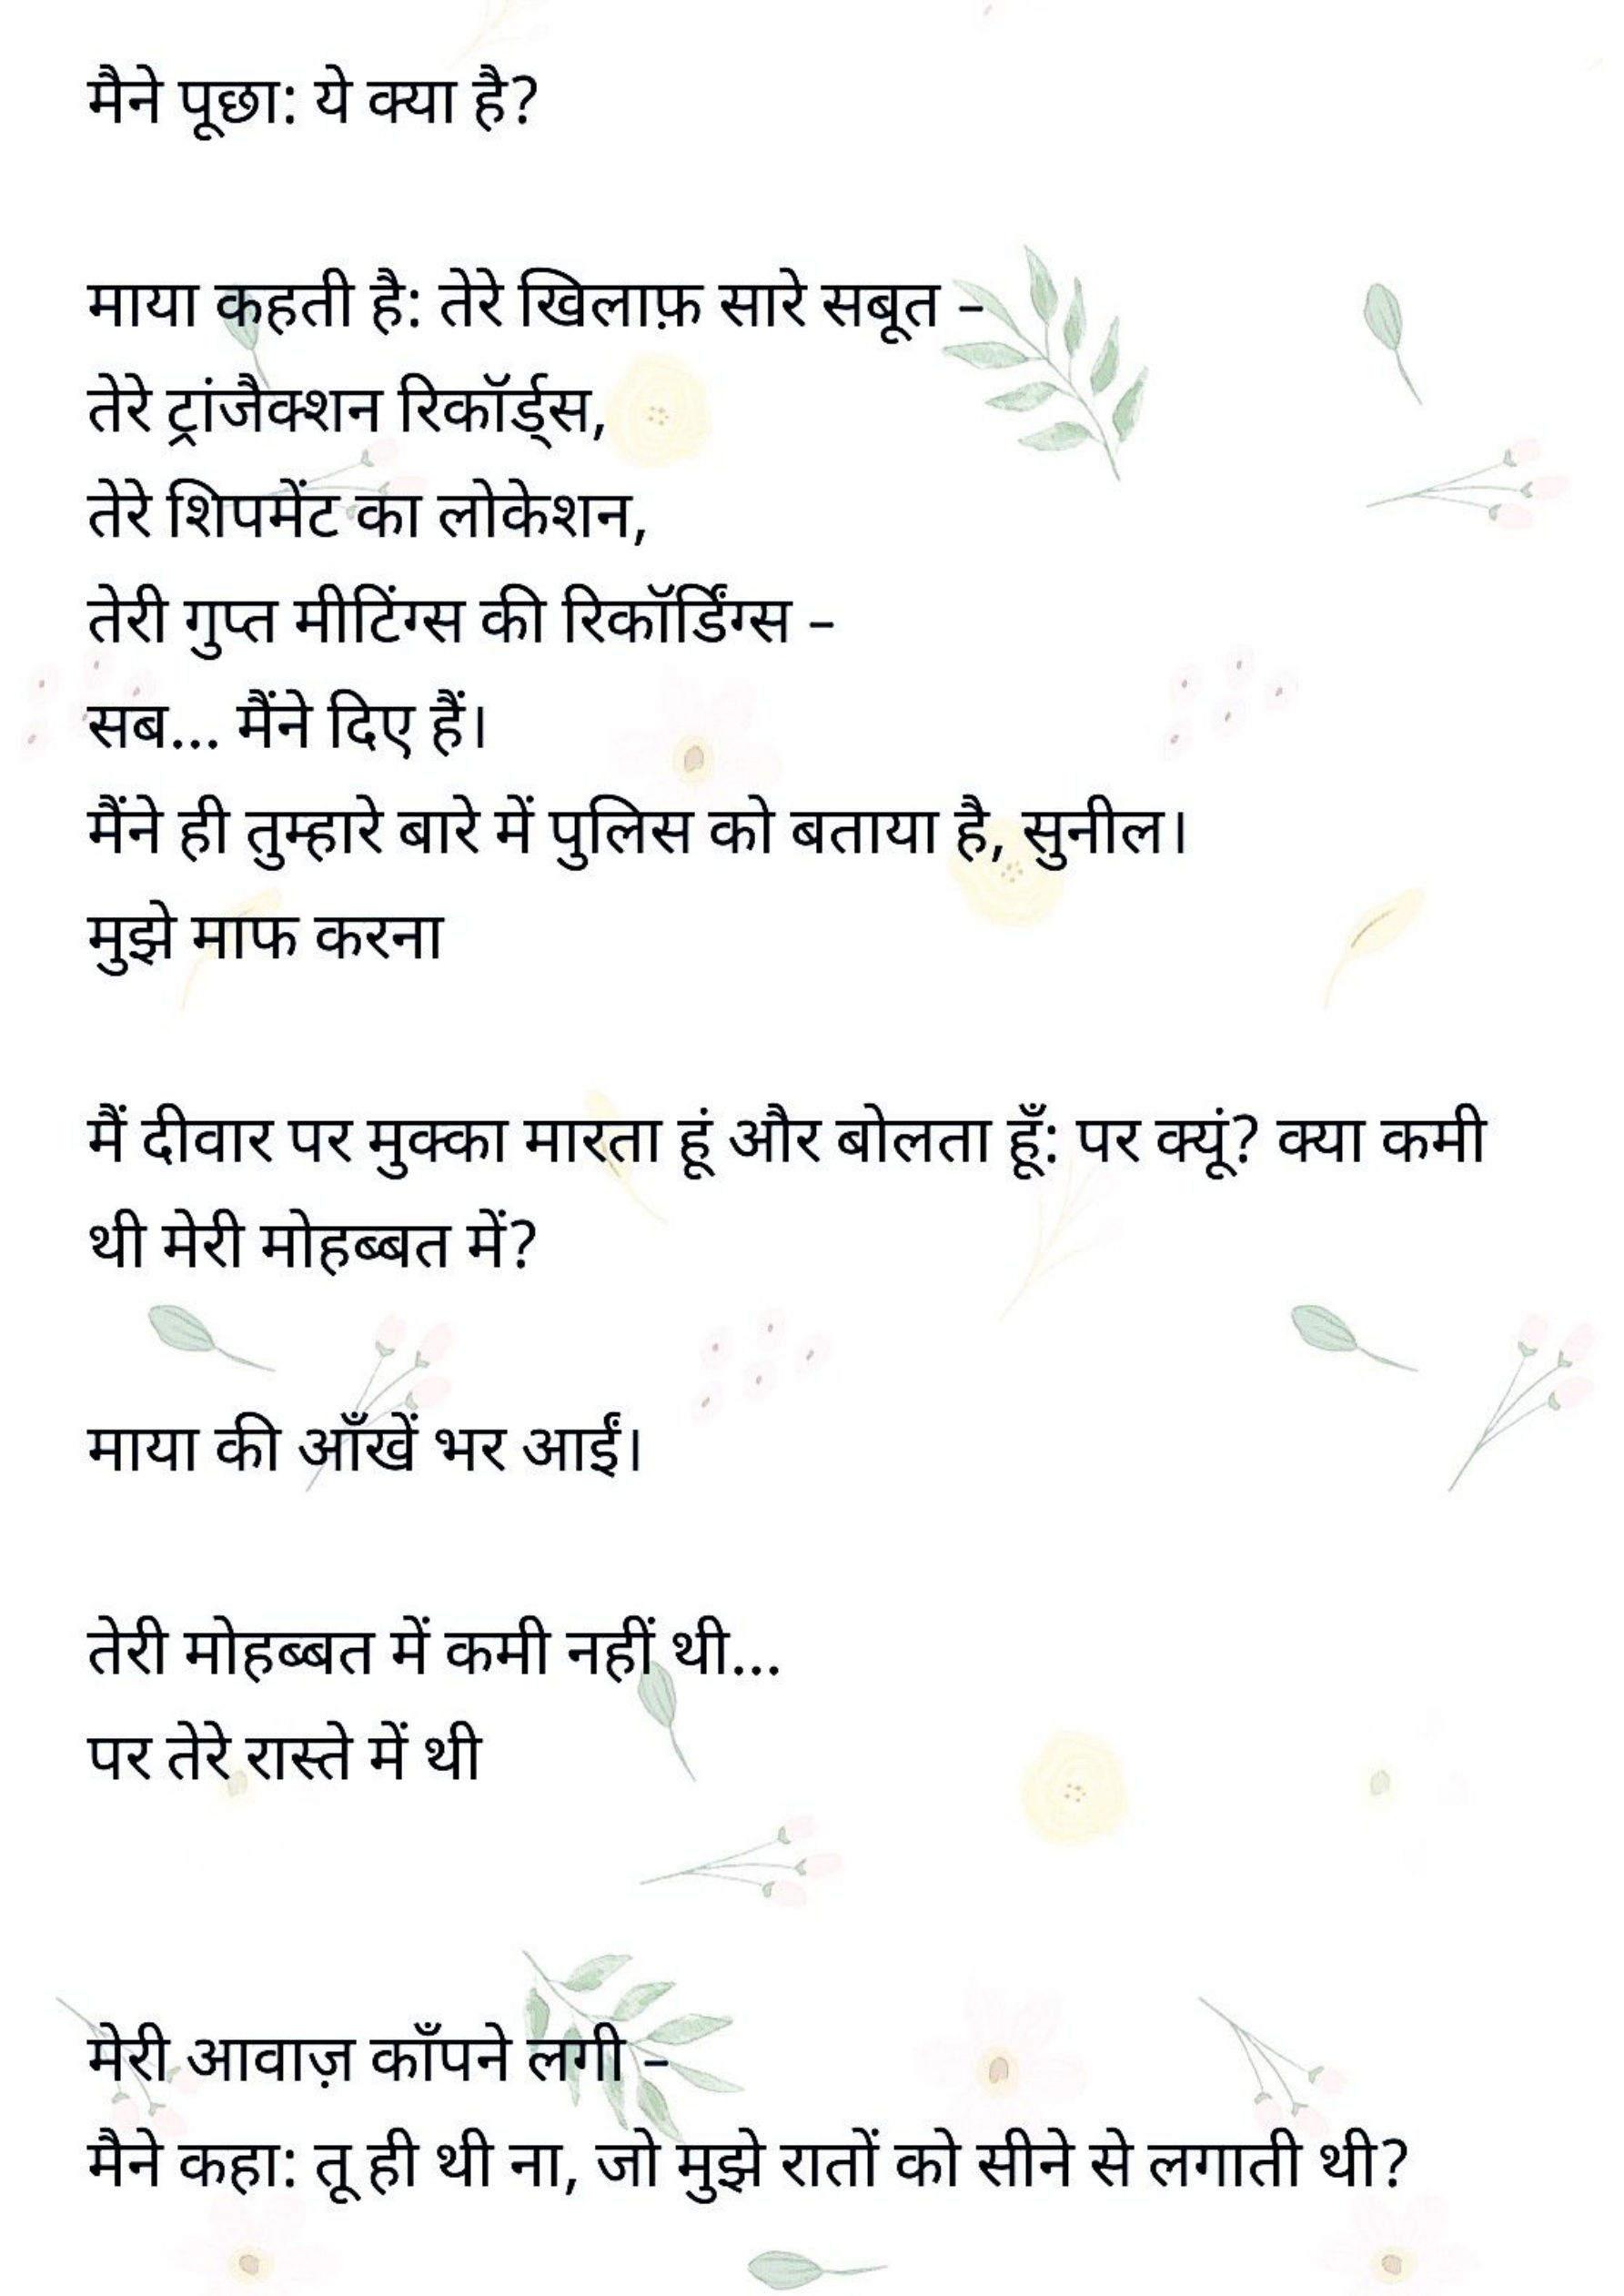 मैने पूछा: ये क्या है?
माया कहती है: तेरे खिलाफ़ सारे सबूत –
तेरे ट्रांजैक्शन रिकॉर्ड्स,
तेरे शिपमेंट का लोकेशन,
तेरी गुप्त मीटिंग्स की रिकॉर्डिंग्स –
सब... मैंने दिए हैं।
मैंने ही तुम्हारे बारे में पुलिस को बताया है, सुनील।
मुझे माफ करना
मैं दीवार पर मुक्का मारता हूं और बोलता हूँ: पर क्यूं? क्या कमी
थी मेरी मोहब्बत में?
माया की आँखें भर आईं।
तेरी मोहब्बत में कमी नहीं थी...
पर तेरे रास्ते में थी
मेरी आवाज़ काँपने लगी –
मैने कहा: तू ही थी ना, जो मुझे रातों को सीने से लगाती थी?